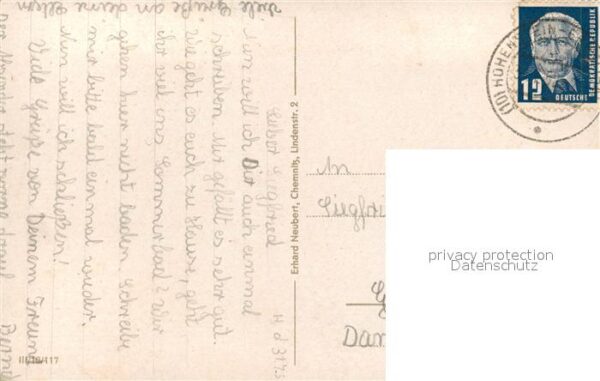 Lieber Siegfried
Nun will ich Dir auch einmal
schreiben. Mir gefällt es sehr gut.
Wie geht es euch zu Hause, geht
ihr viel ins Sommerbad? Wir
gehen hier nicht baden. Schreibe
mir bitte bald einmal wieder.
Nun will ich schließen!
Viele Grüße von Deinem Freund
Bernd
viele Grüße an deine Eltern
Erhard Neubert, Chemnitz, Lindenstr. 2
An
Siegfri
Dan
III/18/117
(10) HOHEN
12
DEUTSCHE
DEMOKRATISCHE REPUBLIK
privacy protection
Datenschutz